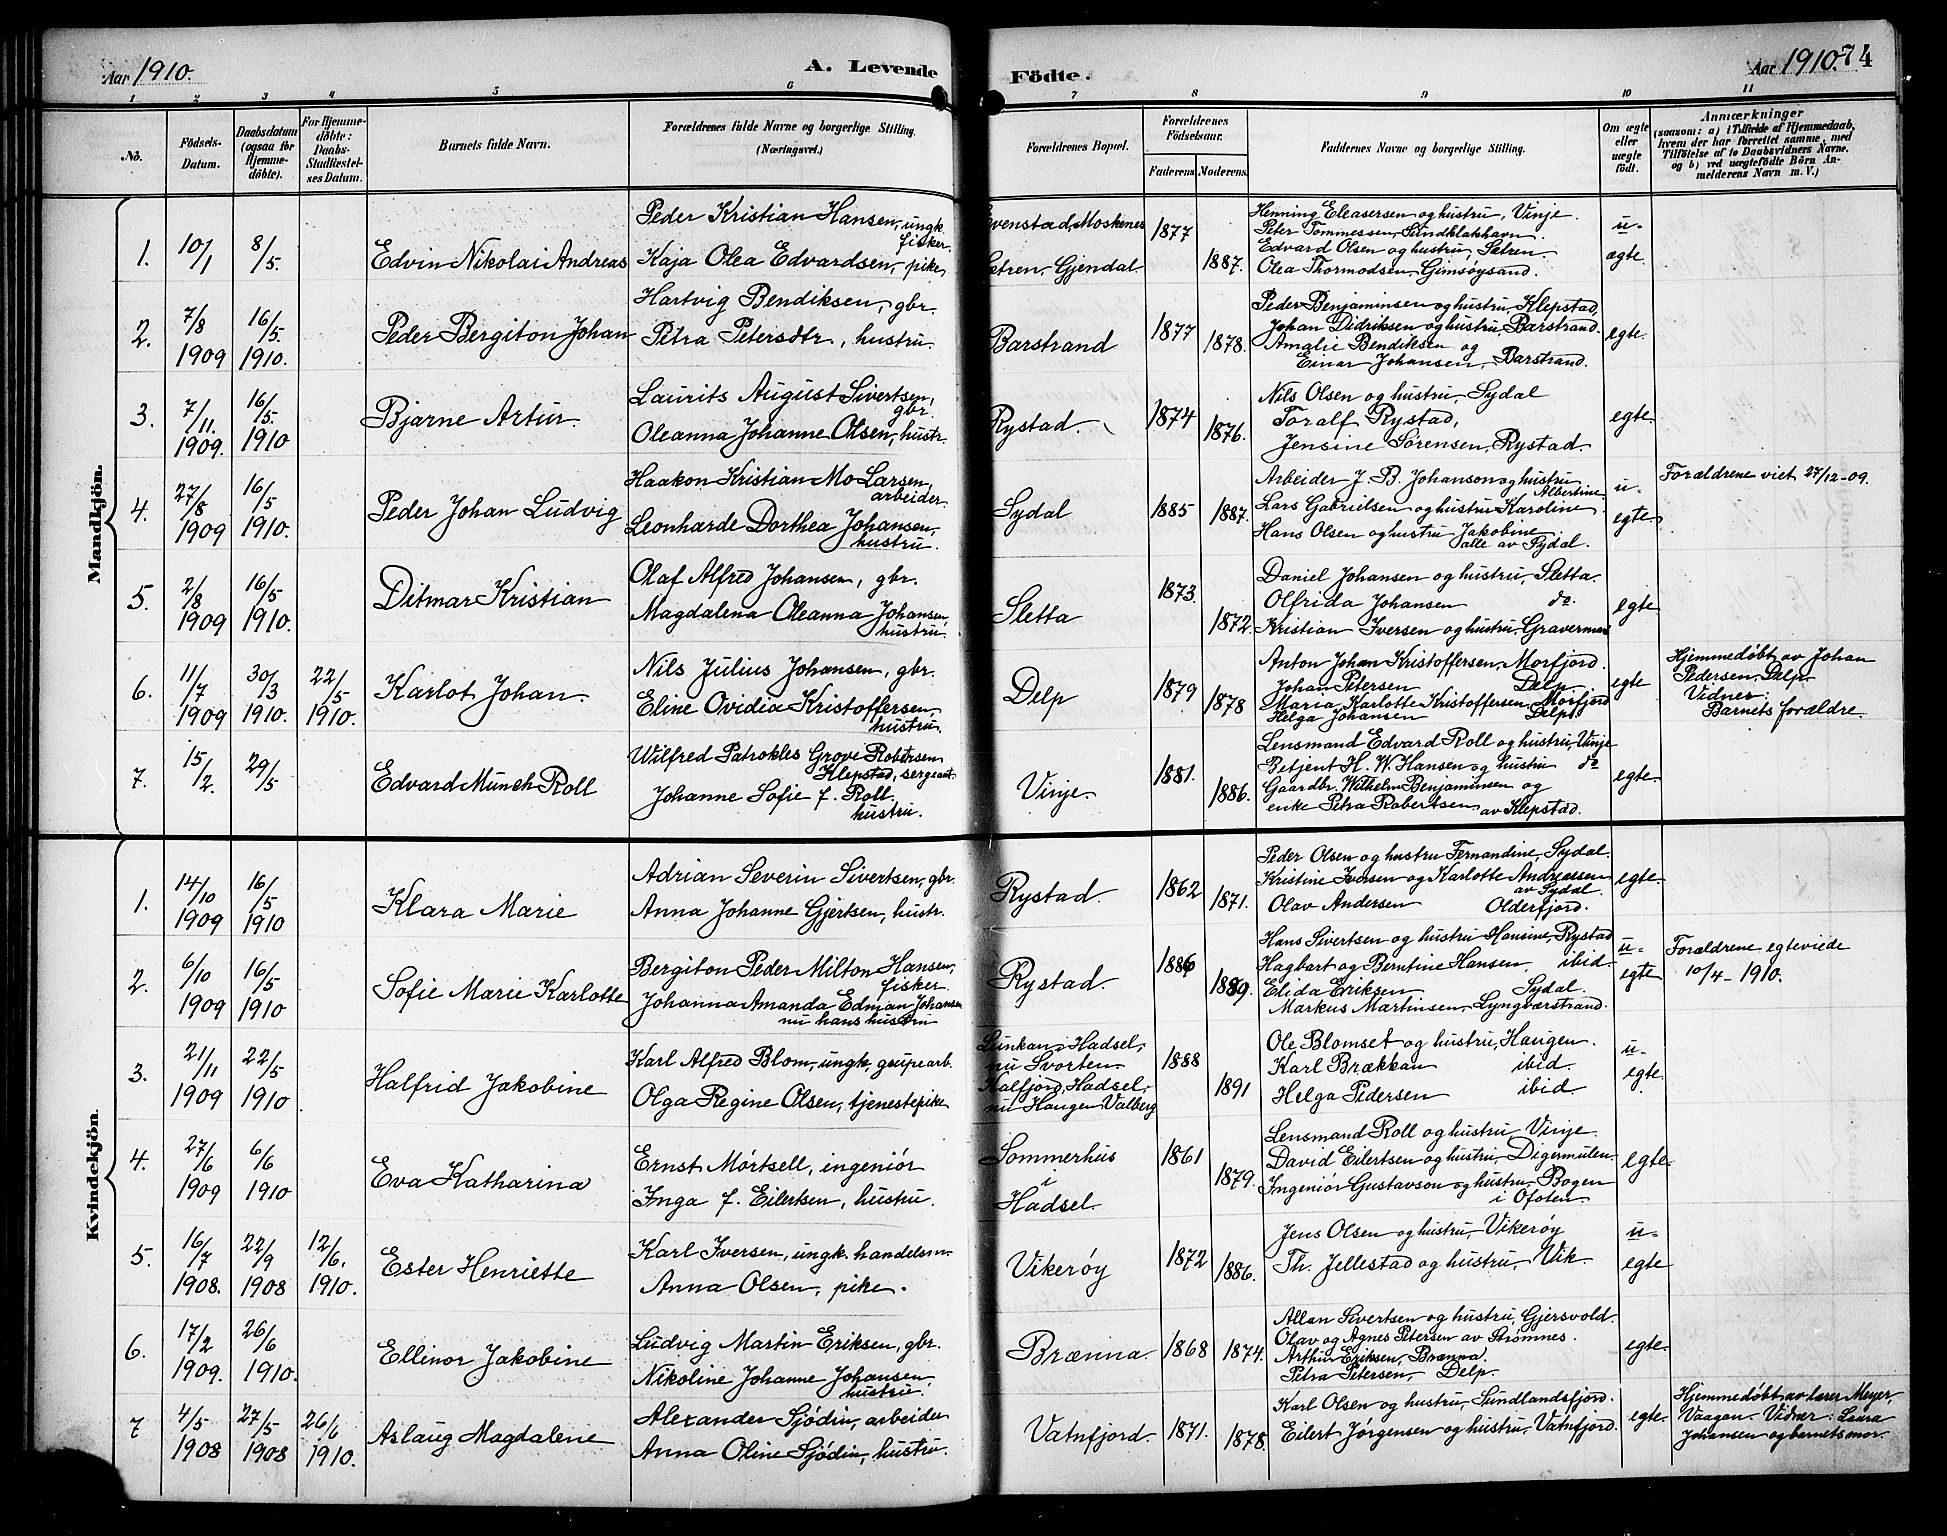 Aar 1910. A. Levende Födte. Aar 1910. 74
1 2 3 4 5 6 7 8 9 10 11
No. Födsels-Datum. Daabsdatum (ogsaa for Hjemmedöbte). For Hjemmedöbte: Daabs-Stadfæstelses Datum. Barnets fulde Navn. Forældrenes fulde Navne og borgerlige Stilling. (Næringsvei.) Forældrenes Bopæl. Forældrenes Födselsaar. Faderens. Moderens. Faddernes Navne og borgerlige Stilling. Om ægte eller uægte födt. Anmærkninger (saasom: a) i Tilfælde af Hjemmedaab, hvem der har forrettet samme, med Tilföielse af to Daabsvidners Navne. og b) ved uægtefödte Börn Anmelderens Navn m. V.)
Mandkjön.
Peder Kristian Hansen, ungk. fisker.
1. 10/1 8/5. Edvin Nikolai Andreas Kaja Olea Edvardsen, pike,
Evenstad, Moskenes 1877
Setren, Gjendal 1887.
Henning Eleasersen og hustru, Vinje.
Peter Tommessen, Sundklakhavn.
Edvard Olsen og hustru, Setren.
Olea Thormodsen, Gimsøysand.
u-ægte.
2. 7/8 1909 16/5. 1910. Peder Bergiton Johan
Hartvig Bendiksen, gbr.
Petra Petersdtr., hustru.
Barstrand 1877 1878.
Peder Benjaminsen og hustru, Klepstad,
Johan Didriksen og hustru, Barstrand.
Amalie Bendiksen og
Einar Johansen, Barstrand.
egte.
3. 7/11. 1909. 16/5. 1910 Bjarne Artur.
Laurits August Sivertsen, gbr.
Oleanna Johanne Olsen, hustr.
Rystad. 1874 1876.
Nils Olsen og hustru, Sydal
Toralf Rystad,
Jensine Sørensen, Rystad.
egte.
4. 27/8 1909 16/5 1910. Peder Johan Ludvig
Haakon Kristian Mo Larsen, arbeider.
Leonharde Dorthea Johansen, hustru.
Sydal 1885 1887.
Arbeider J. B. Johanson og hustru Albertine
Lars Gabrielsen og hustru Karoline
Hans Olsen og hustru Jakobine
alle av Sydal.
u-egte.
Forældrene viet 27/12-09.
5. 2/8 1909 16/5 1910. Ditmar Kristian
Olaf Alfred Johansen, gbr.
Magdalena Oleanna Johansen, hustru.
Sletta 1873. 1872.
Daniel Johansen og hustru, Sletta.
Olfrida Johansen do.
Kristian Iversen og hustru, Gravermark
egte
6. 11/7 1909 30/3 1910. 22/5 1910. Karlot Johan.
Nils Julius Johansen, gbr.
Eline Ovidia Kristoffersen, hustru.
Delp 1879 1878
Anton Johan Kristoffersen, Morfjord.
Johan Petersen Delp
Maria Karlotte Kristoffersen, Morfjord
Helga Johansen Delp.
egte
Hjemmedøbt av Johan
Pedersen, Delp.
Vidner:
Barnets forældre.
7. 15/2. 29/5 Edvard Münch Roll
Wilfred Patrokles Grove Robertsen
Klepstad, sergeant.
Johanne Sofie f. Roll. hustru.
Vinje. 1881. 1886.
Lensmand Edvard Roll og hustru, Vinje
Betjent H. W. Hansen og hustru do
Gaardbr. Wilhelm Benjaminsen og
enke Petra Robertsen av Klepstad.
egte.
Kvindekjön.
1. 14/10 1909 16/5 1910 Klara Marie
Adrian Severin Sivertsen, gbr.
Anna Johanne Gjertsen, hustr.
Rystad. 1862 1871.
Peder Olsen og hustru Fernandine, Sydal.
Kristine Iversen og Karlotte Andreassen
av Sydal.
Olav Andersen Olderfjord.
egte.
2. 6/10 1909 16/5 1910 Sofie Marie Karlotte
Bergiton Peder Milton Hansen, fisker.
Johanna Amanda Edman Johansen
nu hans hustru
Rystad. 1886 1889.
Hans Sivertsen og hustru Hansine, Rystad
Hagbart og Berntine Hansen, ibid.
Elida Eriksen Sydal.
Markus Martinsen, Lyngværstrand.
u-egte
Forældrene egteviede
10/4-1910.
3. 21/11 1909 22/5 1910 Halfrid Jakobine
Karl Alfred Blom, ungk. grupearb.
Olga Regine Olsen, tjenestepike
Lunkan, Hadsel,
nu Svorten.
Kalfjord, Hadsel,
nu Haugen Valberg
1888 1891
Ole Blomset og hustru, Haugen.
Karl Brækkan ibid.
Helga Pedersen ibid.
u-egte.
4. 27/6 1909 6/6 1910 Eva Katharina
Ernst Mörtsell, ingeniör
Inga f. Eilertsen, hustru.
Sommerhus
i
Hadsel.
1861 1879.
Lensmand Roll og hustru Vinje.
David Eilertsen og hustru, Digermulen.
Ingeniör Gustavson og hustru, Bogen
i Ofoten.
egte.
5. 16/7 1908. 22/9 1908 12/6. 1910. Ester Henriette
Karl Iversen, ungk. handelsm.
Anna Olsen, pike.
Vikerøy 1872 1886.
Jens Olsen og hustru, Vikerøy
Th. Jellestad og hustru, Vik.
u-egte
6. 17/2 1909. 26/6 1910. Ellinor Jakobine
Ludvig Martin Eriksen, gbr.
Nikoline Johanne Johansen hustru.
Brænna. 1868 1874.
Allan Sivertsen og hustru, Gjersvold.
Olav og Agnes Petersen av Strømnes.
Arthur Eriksen, Brænna.
Petra Petersen, Delp.
egte.
7 4/5 1908 27/5 1908 26/6 1910. Aslaug Magdalene
Alexander Sjödin, arbeider
Anna Oline Sjödin, hustru.
Vatnfjord. 1871. 1878.
Karl Olsen og hustru, Sundlandsfjord.
Eilert Jørgensen og hustru, Vatnfjord.
egte.
Hjemmedøbt av lærer Meyer,
Vaagan. Vidner: Laura
Johansen og barnets mor.